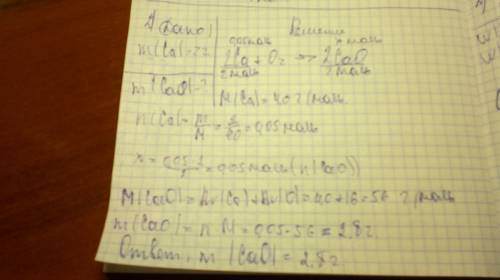 Дано Решение
m(Ca)=2г 0,05моль x моль
2Ca + O2 => 2CaO
2моль 2моль
m(CaO)-?
M(Ca)=40 г/моль
n(Ca)=m/M=2/40=0,05моль
x=0,05·2/2=0,05моль(n(CaO))
M(CaO)=Ar(Ca)+Ar(O)=40+16=56 г/моль
m(CaO)=n·M=0,05·56=2,8г.
Ответ: m(CaO)=2,8г.